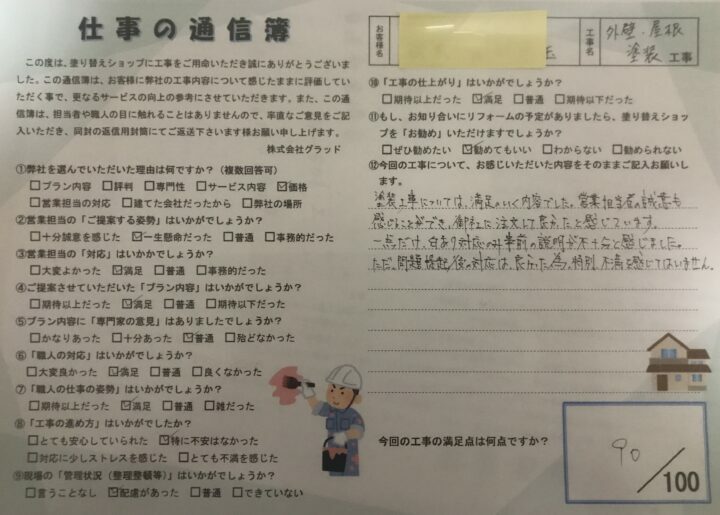 仕事の通信簿
この度は、塗り替えショップに工事をご用命いただき誠にありがとうございま
した。この通信簿は、お客様に弊社の工事内容について感じたままに評価してい
ただく事で、更なるサービスの向上の参考にさせていただきます。また、この通
信簿は、担当者や職人の目に触れることはありませんので、率直なご意見をご記
入いただき、同封の返信用封筒にてご返送下さいます様お願い申し上げます。
株式会社グラッド
①弊社を選んでいただいた理由は何ですか？（複数回答可）
□プラン内容 □評判 □専門性 □サービス内容 ☑価格
□営業担当の対応 □建てた会社だったから □弊社の場所
②営業担当の「ご提案する姿勢」はいかがでしょうか？
□十分誠意を感じた ☑一生懸命だった □普通 □事務的だった
③営業担当の「対応」はいかかでしょうか？
□大変よかった ☑満足 □普通 □事務的だった
④ご提案させていただいた「プラン内容」はいかがでしょうか？
□期待以上だった ☑満足 □普通 □期待以下だった
⑤プラン内容に「専門家の意見」はありましたでしょうか？
□かなりあった □十分あった ☑普通 □殆どなかった
⑥「職人の対応」はいかがでしょうか？
□大変良かった ☑満足 □普通 □良くなかった
⑦「職人の仕事の姿勢」はいかがでしょうか？
□期待以上だった ☑満足 □普通 □雑だった
⑧「工事の進め方」はいかがでしたか？
□とても安心していられた ☑特に不安はなかった
□対応に少しストレスを感じた □とても不満を感じた
⑨現場の「管理状況（整理整頓等）」はいかがでしょうか？
□言うことなし ☑配慮があった □普通 □できていない
お客様名
工事名 外壁・屋根
塗装 工事
⑩「工事の仕上がり」はいかがでしょうか？
□期待以上だった ☑満足 □普通 □期待以下だった
⑪もし、お知り合いにリフォームの予定がありましたら、塗り替えショッ
プを「お勧め」いただけますでしょうか？
□ぜひ勧めたい ☑勧めてもいい □わからない □勧められない
⑫今回の工事について、お感じいただいた内容をそのままご記入お願いし
ます。
塗装工事については、満足のいく内容でした。営業担当者の誠意も
感じることができ、御社に注文して良かったと感じています。
一点だけ、白あり対応のみ事前の説明が不十分と感じました。
ただ、問題提起後の対応は、良かった為、特別、不満を感じてはいません。
今回の工事の満足点は何点ですか？
90/100